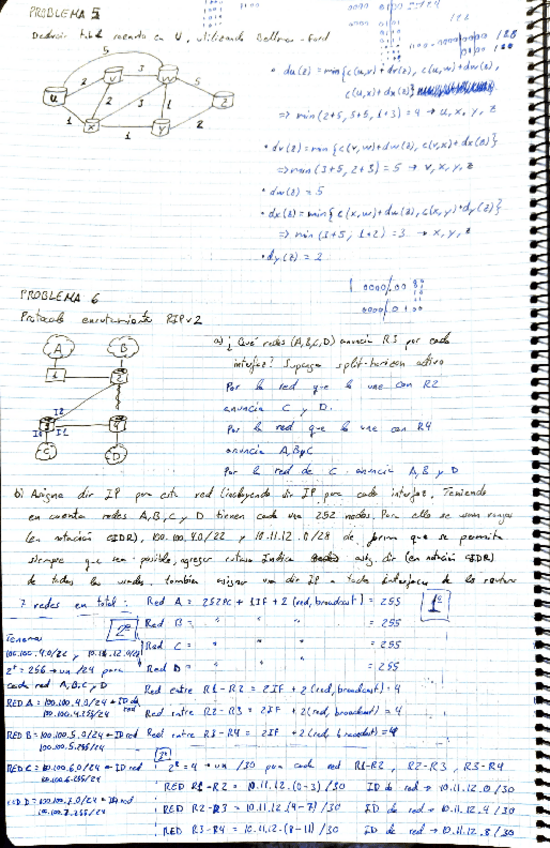 PROBLEMA 5
Deducir tabla rooteado en U, utilizando Bellman-Ford
5
2
3
5
2
3
1
1
1
2
u
v
w
x
y
z
• du(z) = min{c(u,v)+dv(z), c(u,w)+dw(z),
c(u,x)+dx(z)}
=> min(2+5, 5+5, 1+3) = 4 → u, x, y, z
• dv(z) = min{c(v,w)+dw(z), c(v,x)+dx(z)}
=> min(3+5, 2+3) = 5 → v, x, y, z
• dw(z) = 5
• dx(z) = min{c(x,w)+dw(z), c(x,y)+dy(z)}
=> min(3+5, 1+2) = 3 → x, y, z
• dy(z) = 2
PROBLEMA 6
Protocolo enrutamiento RIPv2
A
B
1
2
3
4
I2
I1
C
D
a) ¿Qué redes (A,B,C,D) anuncia R3 por cada
interfaz? Suponga split-horizon activo
Por la red que lo une con R2
anuncia C y D.
Por la red que lo une con R4
anuncia A, B y C
Por la red de C anuncia A, B y D
b) Asigne dir IP para esta red (incluyendo dir IP para cada interfaz. Teniendo
en cuenta redes A, B, C y D tienen cada una 252 nodos. Para ello se usan rangos
(en notación CIDR), 100.100.4.0/22 y 10.11.12.0/28 de forma que se permita
siempre que sea posible, agregar rutas. Indica dir (en notación CIDR)
de todas las redes. También asignar una dir IP a toda interfaces de los routers
7 redes en total:
Red A = 252PC + 1IF + 2 (red, broadcast) = 255
1º
Red B = " " " = 255
Red C = " " " = 255
Red D = " " " = 255
Red entre R1-R2 = 2IF + 2(red, broadcast) = 4
Red entre R2-R3 = 2IF + 2(red, broadcast) = 4
Red entre R3-R4 = 2IF + 2(red, broadcast) = 4
2º
Tenemos
100.100.4.0/22 y 10.11.12.0/28
2⁸ = 256 → un /24 para
cada red A, B, C y D
RED A = 100.100.4.0/24 ← ID de red
100.100.4.255/24
RED B = 100.100.5.0/24 ← ID red
100.100.5.255/24
RED C = 100.100.6.0/24 ← ID red
100.100.6.255/24
RED D = 100.100.7.0/24 ← ID red
100.100.7.255/24
2² = 4 → un /30 para cada red R1-R2, R2-R3, R3-R4
RED R1-R2 = 10.11.12.(0-3)/30 ID de red → 10.11.12.0/30
RED R2-R3 = 10.11.12.(4-7)/30 ID de red → 10.11.12.4/30
RED R3-R4 = 10.11.12.(8-11)/30 ID de red → 10.11.12.8/30